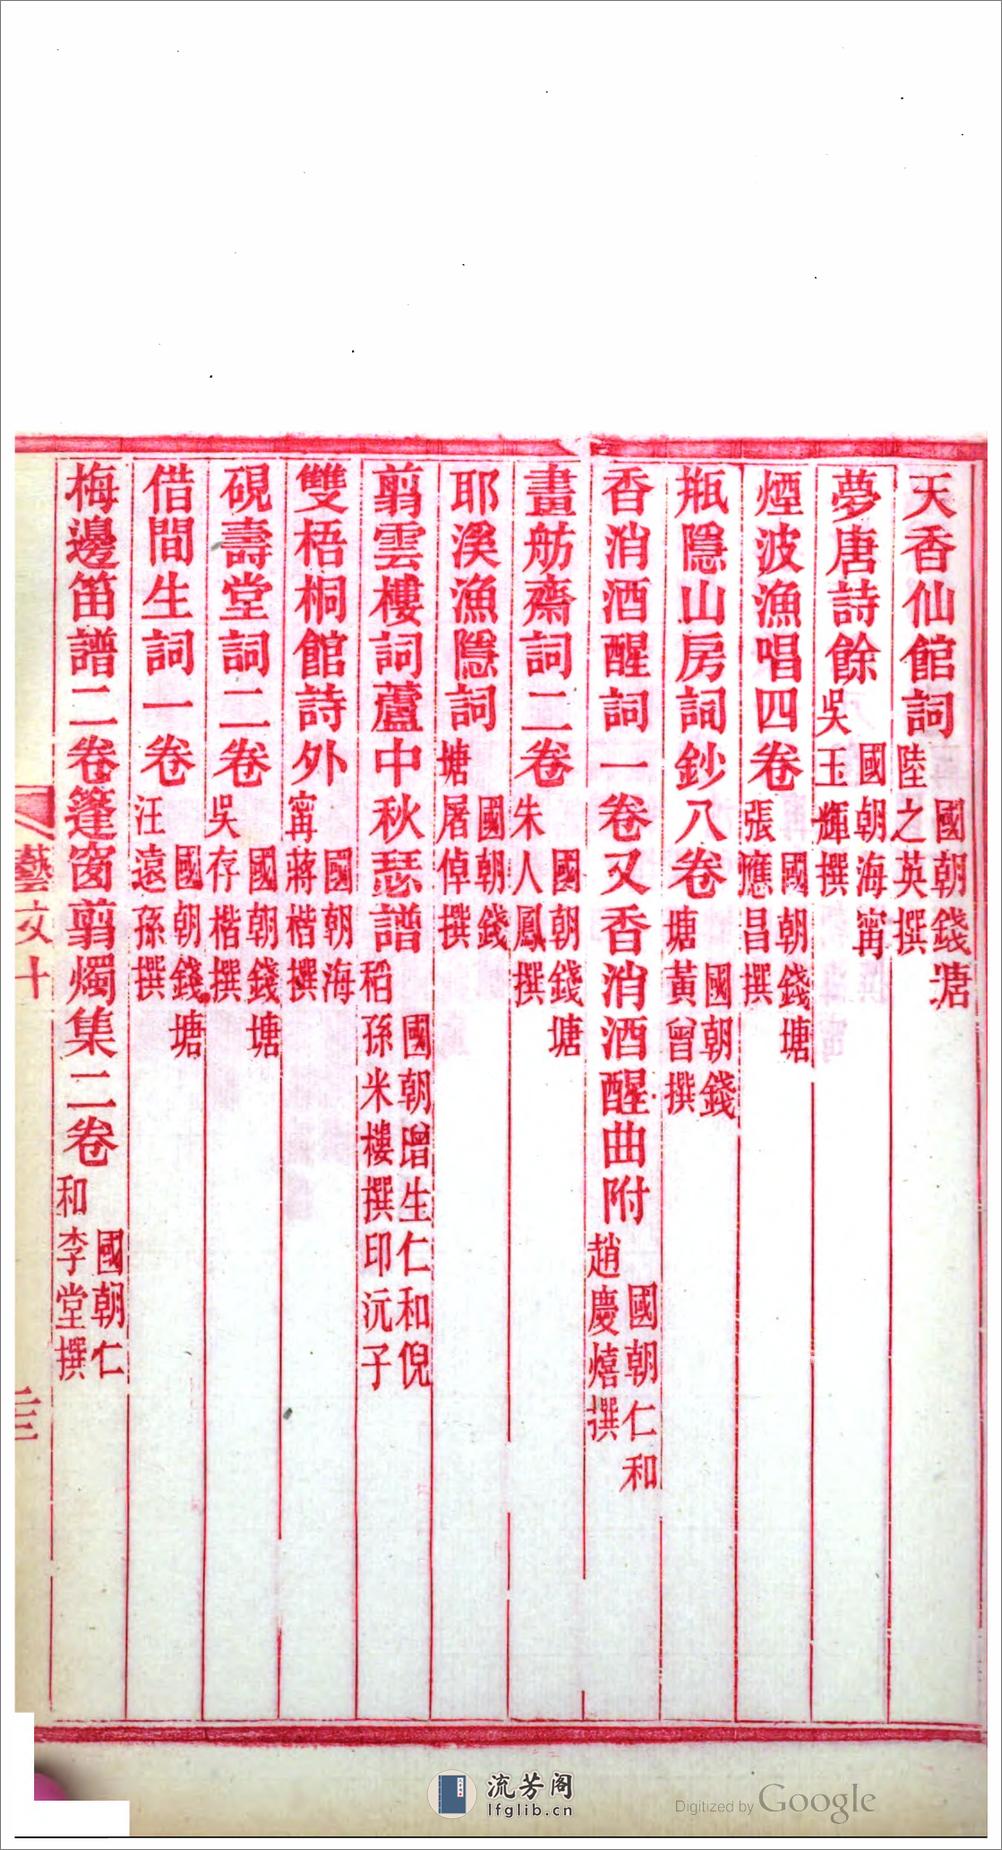 天香仙館詞國朝錢塘陸之英撰
夢唐詩餘國朝海甯吳玉輝撰
煙波漁唱四卷國朝錢塘張應昌撰
瓶隱山房詞鈔八卷國朝錢塘黃曾撰
香消酒醒詞一卷又香消酒醒曲附國朝仁和趙慶熺撰
畫舫齋詞二卷國朝錢塘朱人鳳撰
耶溪漁隱詞國朝錢塘屠倬撰
翦雲樓詞蘆中秋瑟譜國朝增生仁和倪稻孫米樓撰印沅子
雙梧桐館詩外國朝海甯蔣楷撰
硯壽堂詞二卷國朝錢塘吳存楷撰
借閒生詞一卷國朝錢塘汪遠孫撰
梅邊笛譜二卷篷窗翦燭集二卷國朝仁和李堂撰
藝文十
流芳阁
lfglib.cn
Digitized by Google